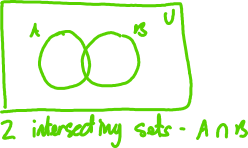 U
A B
2 intersecting sets - A ∩ B